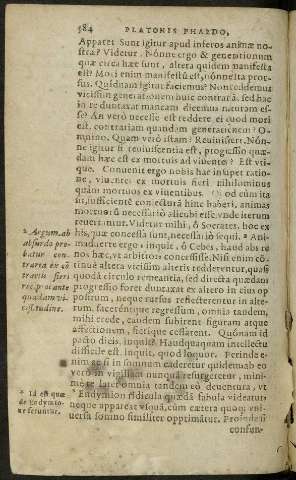 584 PLATONIS PHAEDO,
Apparet. Sunt igitur apud inferos animæ no-
stræ? Videtur. Nonne ergo & generationum
quæ circa hæc sunt, altera quidem manifesta
est? Mori enim manifestũ est, nónne? Ita pror-
sus. Quidnam igitur faciemus? Non reddemus
vicissim generationem huic contrariã, sed hac
in re duntaxat mancam dicemus naturam es-
se? An verò necesse est reddere ei quod mori
est, contrariam quandam generationem? O-
mnino. Quam verò istam? Reuiuiscere. Nón-
ne igitur si reuiuiscentia est, progressio quæ-
dam hæc est ex mortuis ad viuentes? Est vti-
que. Conuenit ergo nobis hac insuper ratio-
ne, viuentes ex mortuis fieri nihilominus
quàm mortuos ex viuentibus. Quod cùm ita
sit, sufficienté coniecturã hinc haberi, animas
mortuorũ necessariò alicubi esse, vnde iterum
reuertantur. Videtur mihi, ô Socrates, hoc ex
his, quæ concessa sunt, necessariò sequi. Ani-
maduerte ergo, inquit, ô Cebes, haud abs re
nos hæc, vt arbitror, concessisse. Nisi enim cõ-
tinuè altera vicissim alteris redderentur, quasi
quodã circulo remeantia, sed directa quædam
progressio foret duntaxat ex altero in eius op
positum, neque rursus reflecteretur in alte-
rum, faceretque regressum, omnia tandem,
mihi crede, eandem subirent figuram atque
affectionem, fierique cessarent. Quónam id
pacto dicis, inquit? Haudquaquam intellectu
difficile est, inquit, quod loquor. Perinde e-
nim ac si in somnum caderetur quidem, ab eo
verò in vigiliam nunquã resurgeretur, mini-
mè te latet omnia tandem eò deuentura, vt
Endymion ridicula quædã fabula videatur,
neque appareat vsquã, cùm cætera quoq; vni-
uersa somno similiter opprimãtur. Proinde si
confun-
Argum. ab
absurdo pro-
batur con-
traria ex cõ
trariis fieri
reciprocante
quadam vi-
cissitudine.
Id est quæ
de Endymio-
ne feruntur.